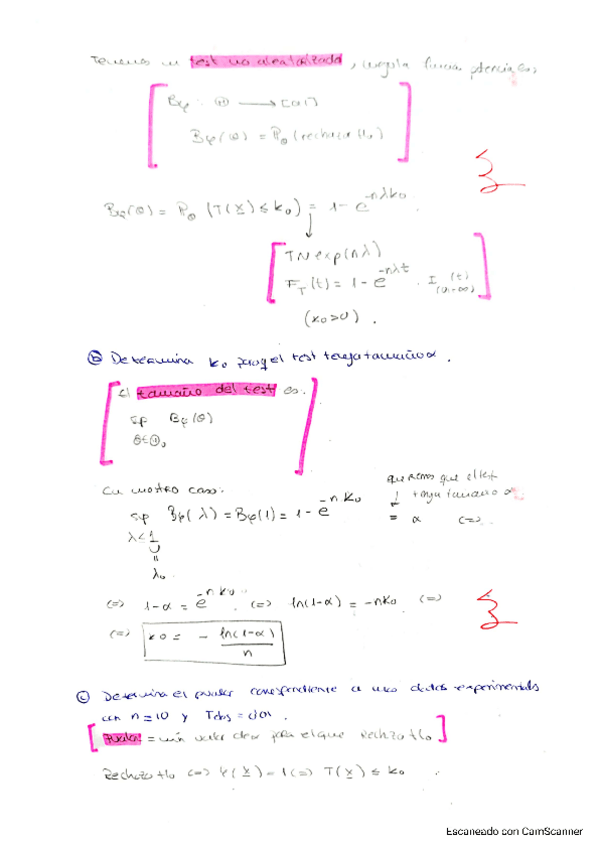 Tenemos un test no aleatorizado, luego la función potencia es:
βφ : Θ → [0,1]
βφ(θ) = Pθ(rechazar H₀)
βφ(θ) = Pθ (T(X) ≤ k₀) = 1 - e^{-nλk₀}.
T ~ exp(nλ)
F_T(t) = 1 - e^{-nλt} · I_{(0,+∞)}(t)
(k₀>0).
ⓑ Determina k₀ para q el test tenga tamaño α.
El tamaño del test es:
sup βφ(θ)
θ∈Θ₀
En nuestro caso:
queremos que el test
tenga tamaño α
sup βφ(λ) = βφ(1) = 1 - e^{-nk₀} = α (=)
λ≤1
λ₀
(=) 1-α = e^{-nk₀} (=) ln(1-α) = -nk₀ (=)
(=) k₀ = - ln(1-α) / n
ⓒ Determina el pvalor correspondiente a unos datos experimentales
con n=10 y Tobs = 0'01.
pvalor = mín valor de α para el que rechazo H₀
Rechazo H₀ (=) φ(X) = 1 (=) T(X) ≤ k₀
Escaneado con CamScanner